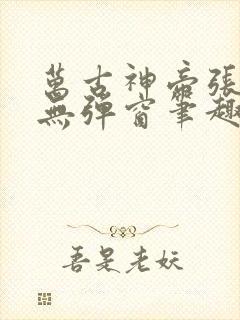 萬古神帝張
無彈窗筆趣
吾是老妖